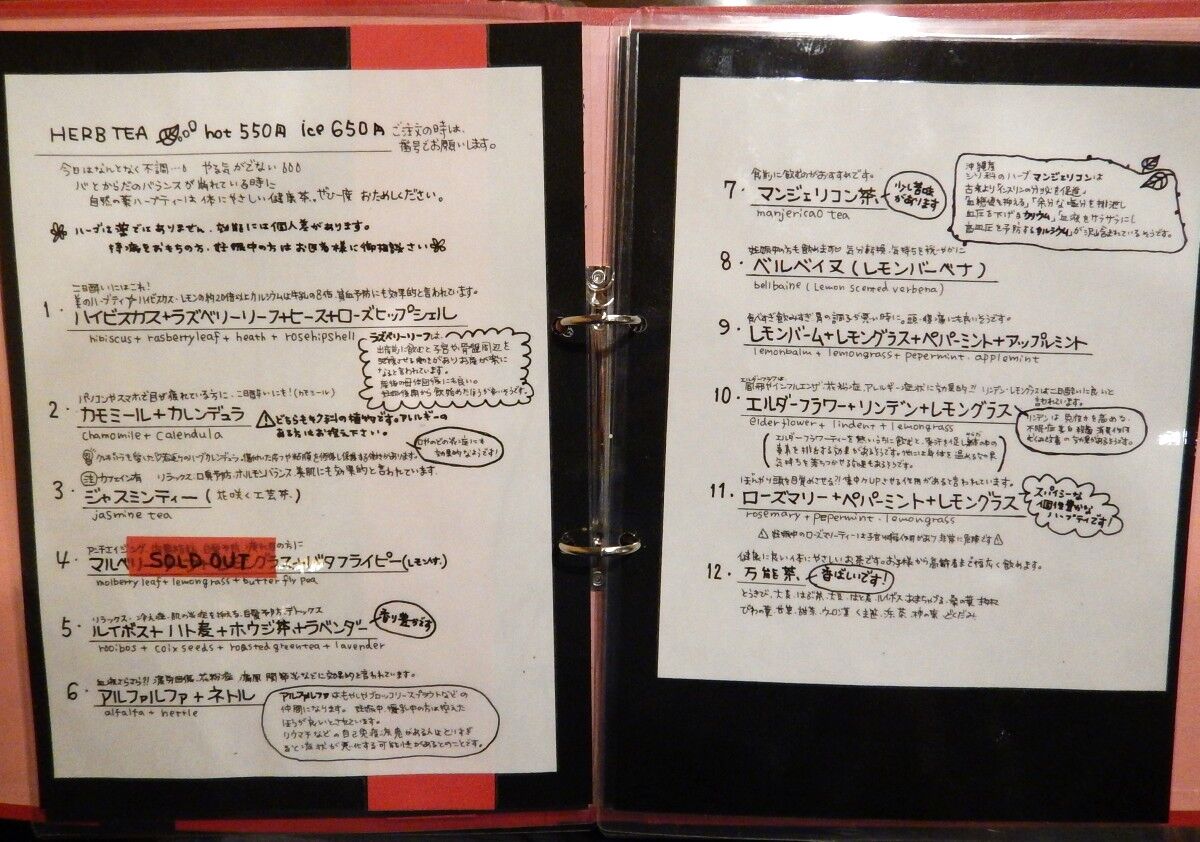 HERB TEA hot 550円 ice 650円 ご注文の時は、
番号でお願いします。
今日はなんとなく不調… やる気がでない
バとからだのバランスが崩れている時に
自然の薬ハーブティーは体にやさしい健康茶。ぜひ一度 おためしください。
ハーブは薬ではありません。効能には個人差があります。
持病をおもちの方、妊娠中の方はお医者様に御相談さい
二日酔いにはこれ!
美のハーブティ ハイビスカス・レモンの約20倍以上カルシウムは牛乳の8倍、貧血予防にも効果的と言われています。
1. ハイビスカス+ラズベリーリーフ+ヒース+ローズヒップシェル
hibiscus + rasberryleaf + heath + rosehipshell
ラズベリーリーフは、
出産前に飲むと子宮や骨盤周辺を
働きがありお産が楽に
なると言われています。
産後の母体回復にも良い。
妊娠後期から飲始めたほうが多いそうです。
パソコンやスマホで目が疲れている方に、二日酔いにも!(カモミール)
2. カモミール+カレンデュラ
chamomile + calendula
⚠どちらもキク科の植物です。アレルギーの
ある方はお控え下さい。
効果的なようです!
注 カフェイン有 リラックス、口臭予防、ホルモンバランス 美肌にも効果的と言われています。
3. ジャスミンティー(花咲く工芸茶)
jasmine tea
アンチエイジング
の方に
4. マルベリー
SOLD OUT
グラス+バタフライピー(レモン付)
molberry leaf + lemongrass + butter fly pea
リラックス、冷え症、肌の炎症を抑える、口臭予防、デトックス
5. ルイボス+ハト麦+ホウジ茶+ラベンダー
rooibos + coix seeds + roasted greentea + lavender
香り豊かです
血液さらさら!! 疲労回復、花粉症 痛風 関節炎などに効果的と言われています。
6. アルファルファ+ネトル
alfalfa + nettle
アルファルファはもやしやブロッコリースプラウトなどの
仲間になります。妊娠中、授乳中の方は控えた
ほうが良いとされています。
リウマチなどの自己免疫疾患がある人はとりすぎ
ると症状が悪化する可能性があるとのことです。
食前に飲むのがおすすめです。
7. マンジェリコン茶、
manjericao tea
少し苦味
があります
沖縄産
シソ科のハーブ マンジェリコンは
古来よりインスリンの分泌を促進し
「血糖値を抑える」「余分な塩分を排泄し
血圧を下げるカリウム」「血液をサラサラにし
高血圧を予防するカルシウム」が沢山含まれているそうです。
妊娠中の方も飲めます。気分転換、気持ちを穏やかに
8. ベルベイヌ(レモンバーベナ)
bellbaine (Lemon scented verbena)
食べすぎ飲みすぎ 胃の調子が悪い時に。頭・腹痛にも良いそうです。
9. レモンバーム+レモングラス+ペパーミント+アップルミント
lemonbalm + lemongrass + pepermint・applemint
エルダーフラワーは
風邪やインフルエンザ、花粉症、アレルギー症状に効果的!! リンデン・レモングラスは二日酔いに良いと
言われています。
10. エルダーフラワー+リンデン+レモングラス
elderflower + lindent + lemongrass
リンデンは 免疫力を高める、
エルダーフラワーティーを熱いうちに飲むと、発汗を促し体の中の
毒素を排出する効果があるそうです。他には身体を温めるので
気持ちを落ちつかせる効果もあるそうです。
ぼんやり頭を目覚めさせる!? 集中力UPさせる作用があると言われています。
11. ローズマリー+ペパーミント+レモングラス
rosemary + pepermint・lemongrass
スパイシーな
個性豊かな
ハーブティです!
⚠妊娠中のローズマリーティーは子宮収縮作用があり非常に危険です⚠
健康に良い体にやさしいお茶です。お子様から高齢者まで幅広く飲めます。
12. 万能茶、
香ばしいです!
とうきび、大麦、はぶ茶、大豆、はと麦、ルイボス、あまちゃづる、桑の葉、枸杞
びわの葉、甘草、甜茶、ウーロン茶、くま笹、浜茶、柿の葉、どくだみ